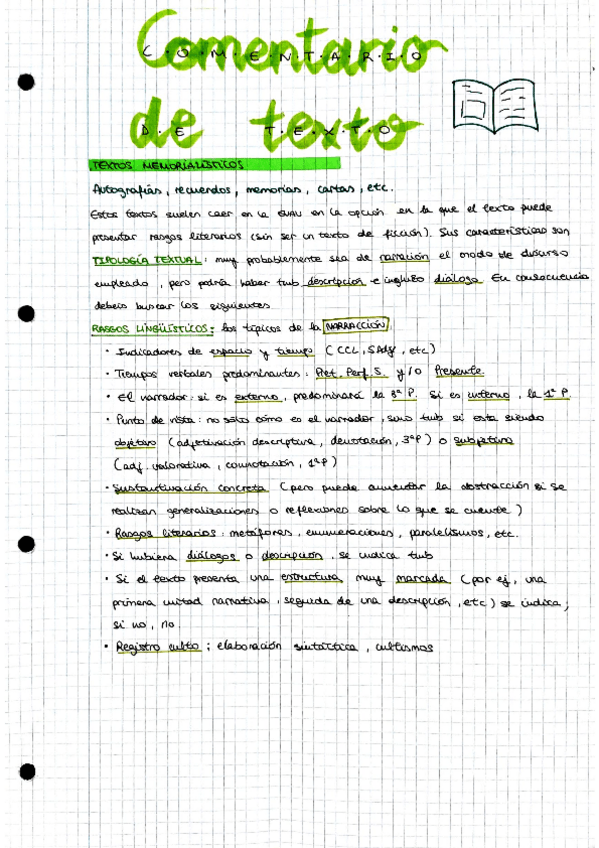 Comentario
C.O.M.E.N.T.A.R.I.O
de texto
D.E T.E.X.T.O
TEXTOS MEMORIALÍSTICOS
Autografías, recuerdos, memorias, cartas, etc.
Estos textos suelen caer en la EVAU en la opción en la que el texto puede
presentar rasgos literarios (sin ser un texto de ficción). Sus características son
TIPOLOGÍA TEXTUAL: muy probablemente sea de narración el modo de discurso
empleado, pero podría haber tmb descripción e incluso diálogo. En consecuencia
debeis buscar los siguientes
RASGOS LINGÜÍSTICOS: los típicos de la NARRACCIÓN.
· Indicadores de espacio y tiempo (CCL, SAdj, etc)
· Tiempos verbales predominantes: Pret. Perf. S. y/o Presente
· El narrador: si es externo, predominará la 3ª P. Si es interno, la 1ª P.
· Punto de vista: no solo cómo es el narrador, sino tmb si esta siendo
objetivo (adjetivación descriptiva, denotación, 3ªP) o subjetivo
(adj. valorativa, connotación, 1ªP)
· Sustantivación concreta (pero puede aumentar la abstracción si se
realizan generalizaciones o reflexiones sobre lo que se cuente)
· Rasgos literarios: metáforas, enumeraciones, paralelismos, etc.
· Si hubiera diálogos o descripción, se indica tmb
· Si el texto presenta una estructura muy marcada (por ej, una
primera unidad narrativa, seguida de una descripción, etc) se indica;
si no, no.
· Registro culto: elaboración sintáctica, cultismos